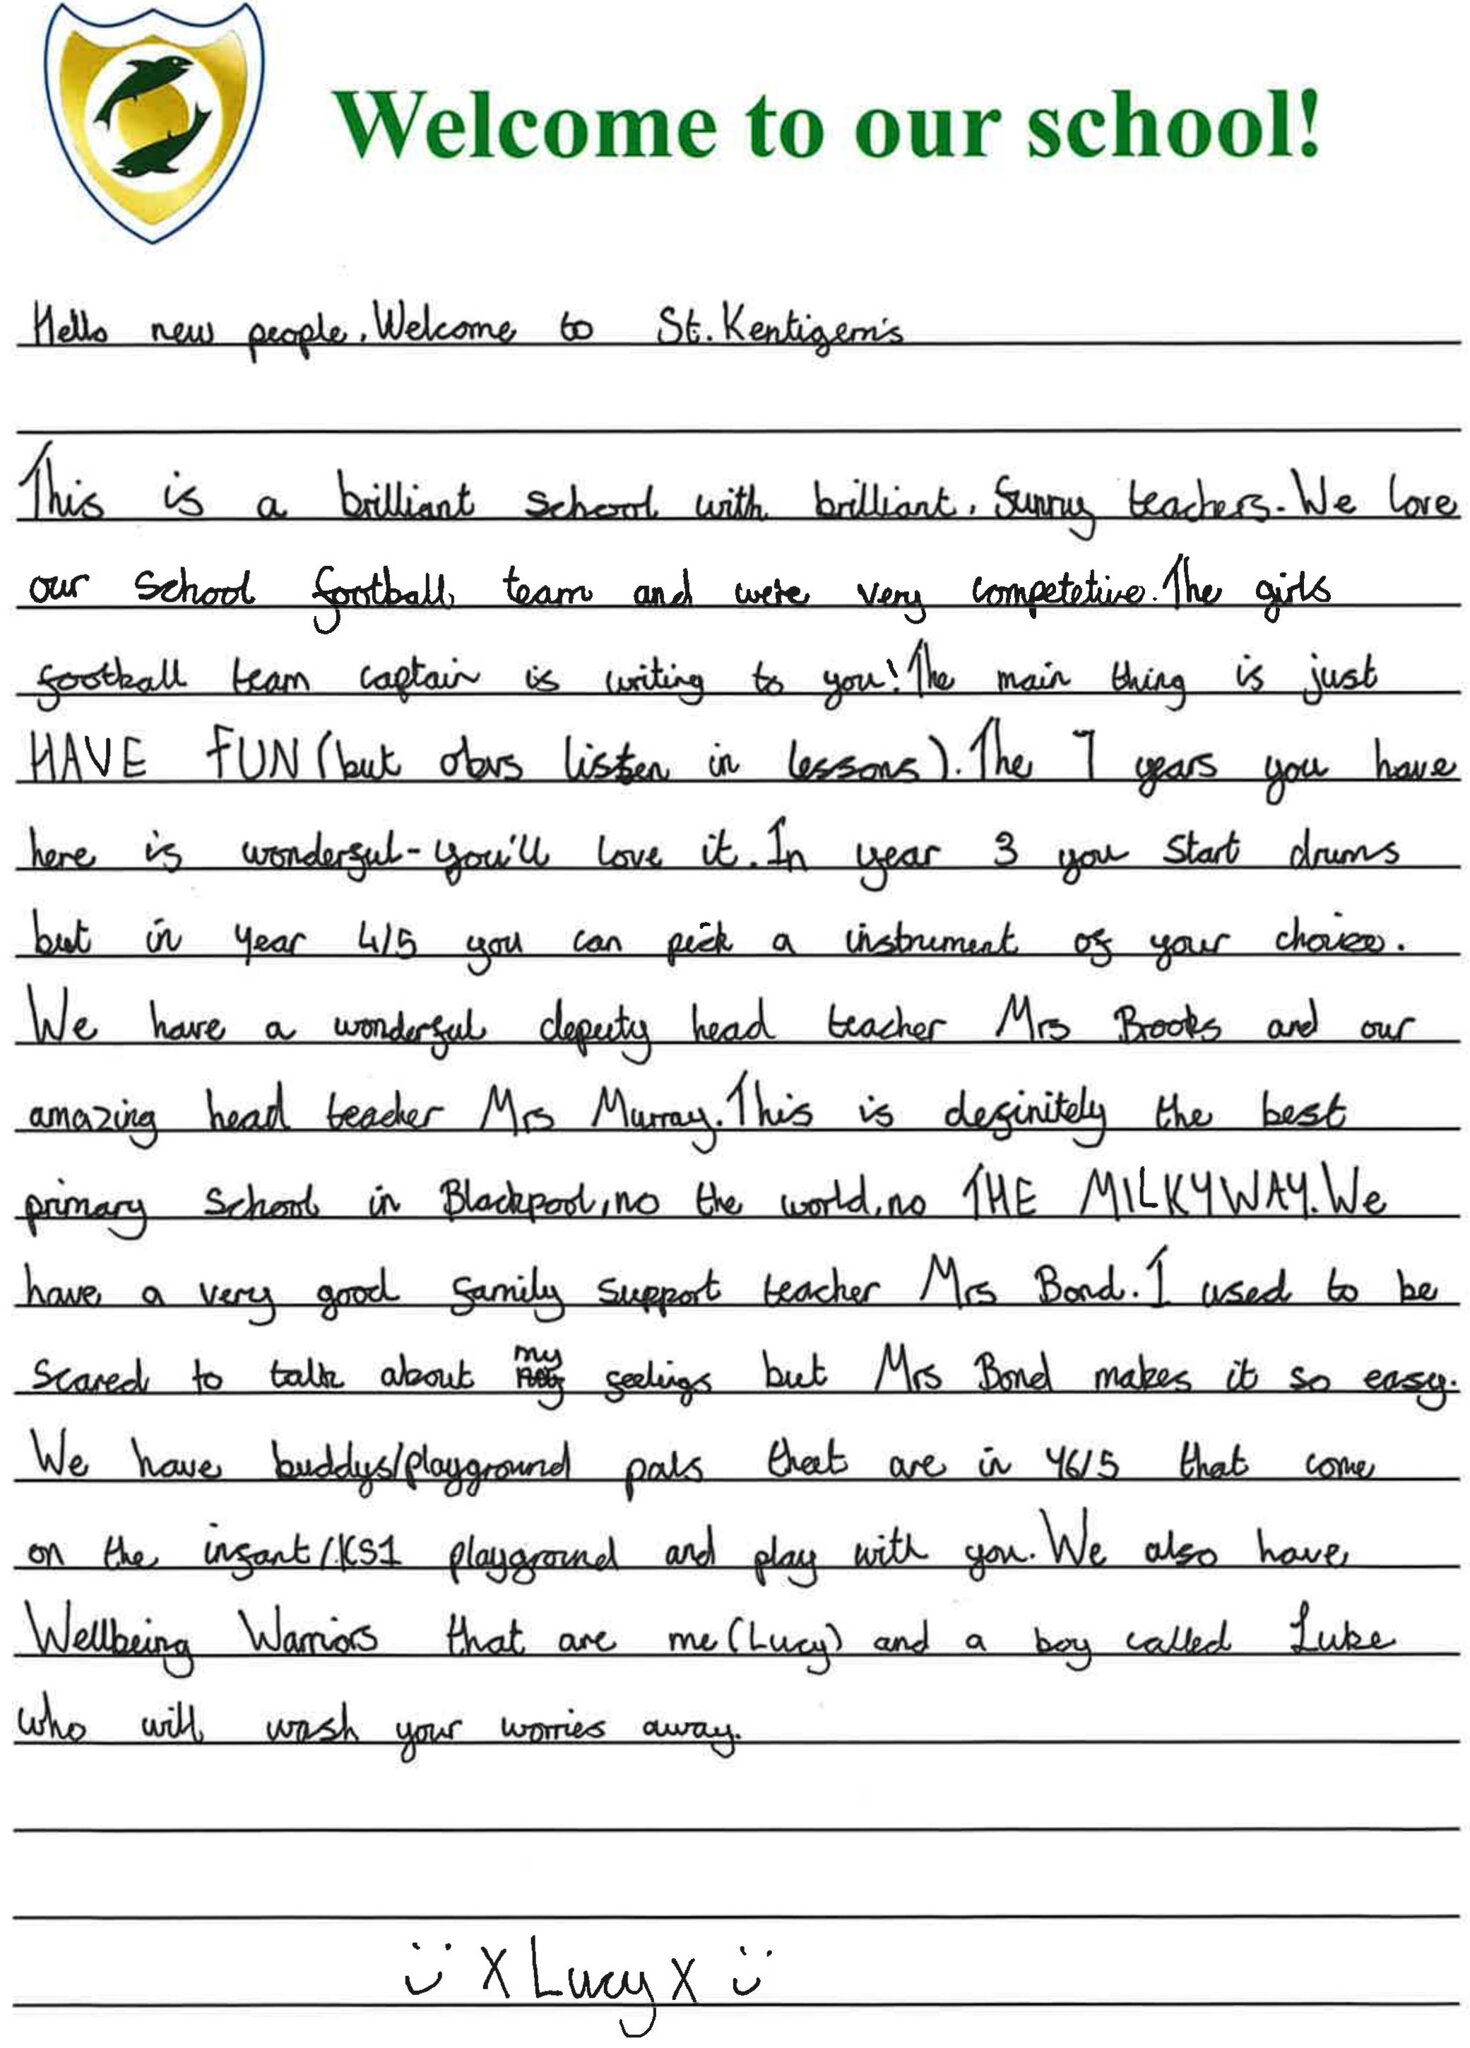 Welcome to our school!
Hello new people. Welcome to St. Kentigern's
This is a brilliant school with brilliant, funny teachers. We love
our school football team and we're very competetive. The girls
football team captain is writing to you! The main thing is just
HAVE FUN (but obvs listen in lessons). The 7 years you have
here is wonderful - you'll love it. In year 3 you start drums
but in year 4/5 you can pick a instrument of your choice.
We have a wonderful deputy head teacher Mrs Brooks and our
amazing head teacher Mrs Murray. This is definitely the best
primary school in Blackpool, no the world, no THE MILKYWAY. We
have a very good family support teacher Mrs Bond. I used to be
scared to talk about my feelings but Mrs Bond makes it so easy.
We have buddys/playground pals that are in Y6/5 that come
on the infant/KS1 playground and play with you. We also have
Wellbeing Warriors that are me (Lucy) and a boy called Luke
who will wash your worries away.
X Lucy X